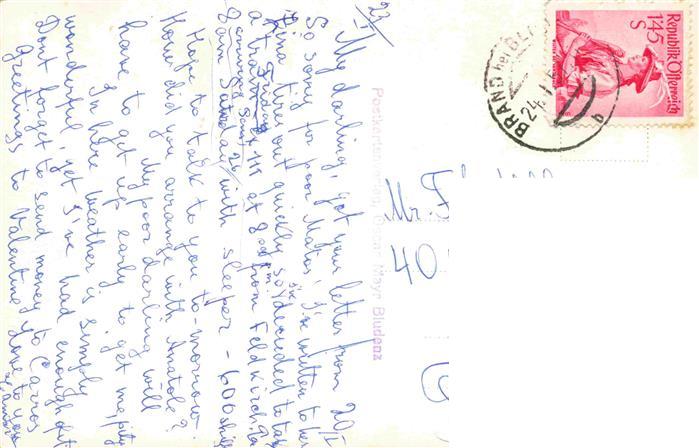 23/I
My darling, got your letter from 20/I
So sorry for poor Matus, I've written to her
Lina ties out quickly so I've decided to take
a train Friday at 8 p.m. from Feldkirch,
evening
from Saturday with sleeper - 600 shill
Hope to talk to you to-morrow.
How did you arrange with Anatole?
My poor darling will
have to get up early to get me, pity
In here weather is simply
wonderful, yet I've had enough of it
Dont forget to send money to Carros
greetings to Valentine, love to you
Republik Österreich
1'45
S
BRAND bei BL
24. I.
b
Postkartenverlag, Oscar Mayr Bludenz
Mr. F
40